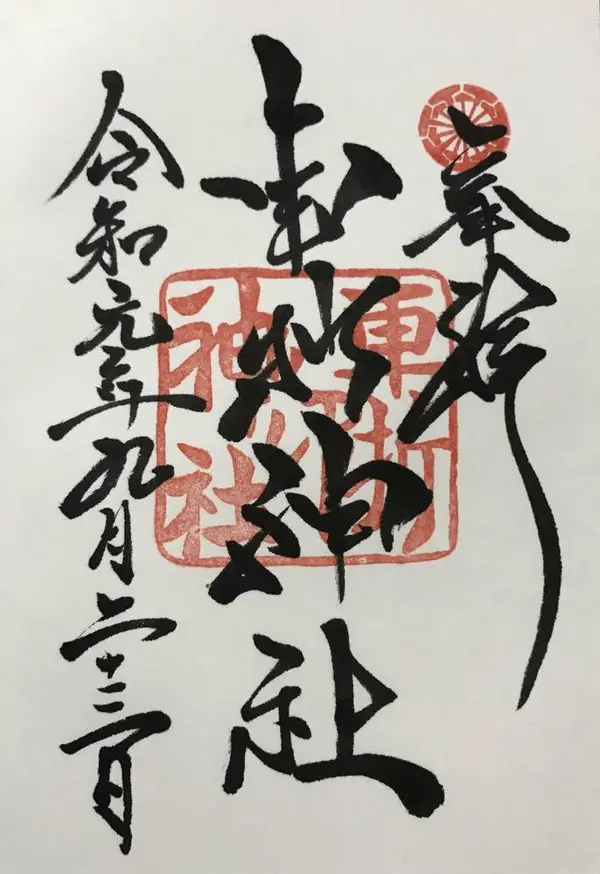 奉拝
車折神社
車折神社
令和元年九月二十三日